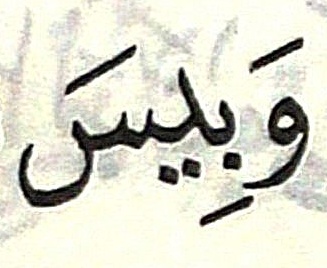 وَبِيسَ